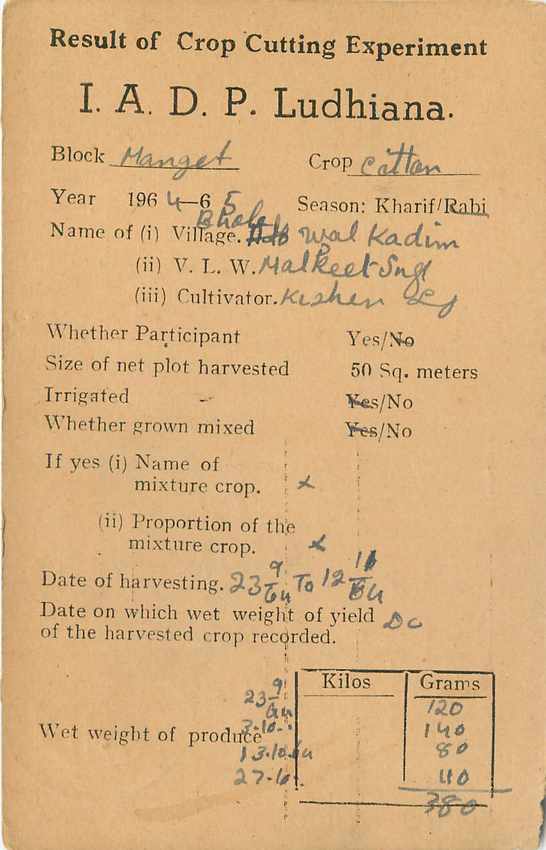 Result of Crop Cutting Experiment
I. A. D. P. Ludhiana.
Block Manget Crop Cotton
Year 1964-65 Season: Kharif/Rabi
Name of (i) Village. Bhola wal Kadim
(ii) V. L. W. Malkeet Sngh
(iii) Cultivator. Kishen
Whether Participant Yes/No
Size of net plot harvested 50 Sq. meters
Irrigated Yes/No
Whether grown mixed Yes/No
If yes (i) Name of
mixture crop. x
(ii) Proportion of the
mixture crop. x
Date of harvesting. 23 9/64 To 12 11/64
Date on which wet weight of yield
of the harvested crop recorded. Do
Kilos Grams
23-9/64 120
3-10- 140
Wet weight of produce
13-10-64 80
27-10 40
380